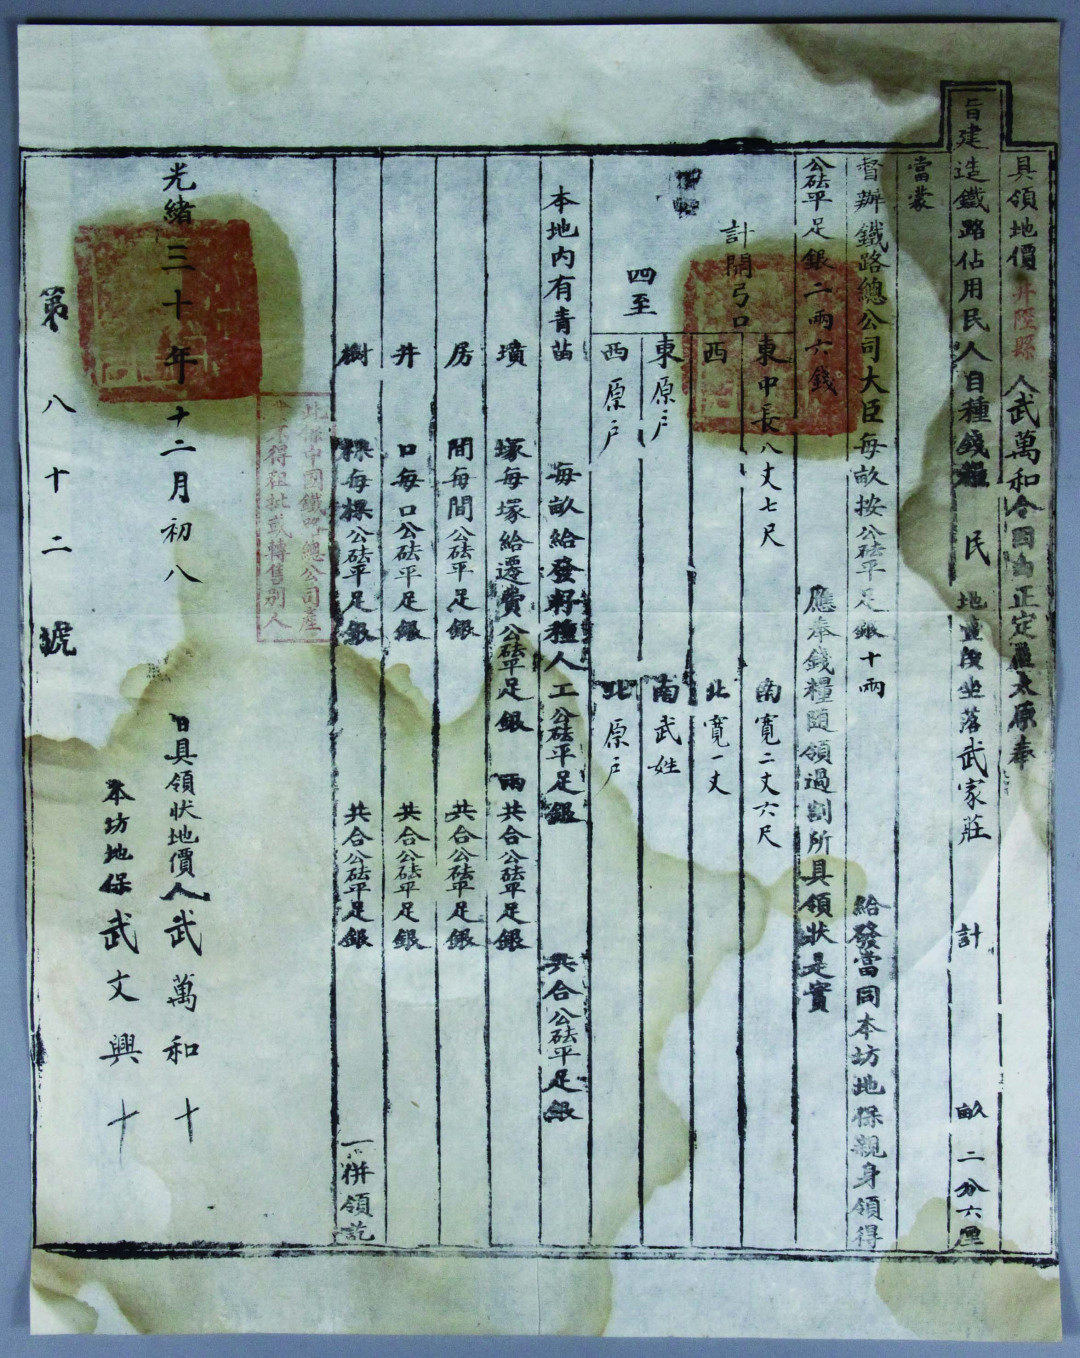 具領地價井陘縣人武萬和今因由正定至太原奉
旨建造鐵路佔用民人自種錢糧民地壹段坐落武家莊計畝二分六厘
當蒙
督辦鐵路總公司大臣每畝按公砝平足銀十兩給發當同本坊地保親身領得
公砝平足銀二兩六錢應奉錢糧隨領過割所具領狀是實
計開弓口
東中長八丈七尺南寬二丈六尺
西北寬一丈
四至
東原戶南武姓
西原戶北原戶
本地內有青苗每畝給發籽種人工公砝平足銀共合公砝平足銀
墳塚每塚給遷費公砝平足銀兩共合公砝平足銀
房間每間公砝平足銀共合公砝平足銀
井口每口公砝平足銀共合公砝平足銀
樹棵每棵公砝平足銀共合公砝平足銀一併領訖
此係中國鐵路總公司產
業不得租批或轉售別人
光緒三十年十二月初八日具領狀地價人武萬和十
本坊地保武文興十
第八十二號